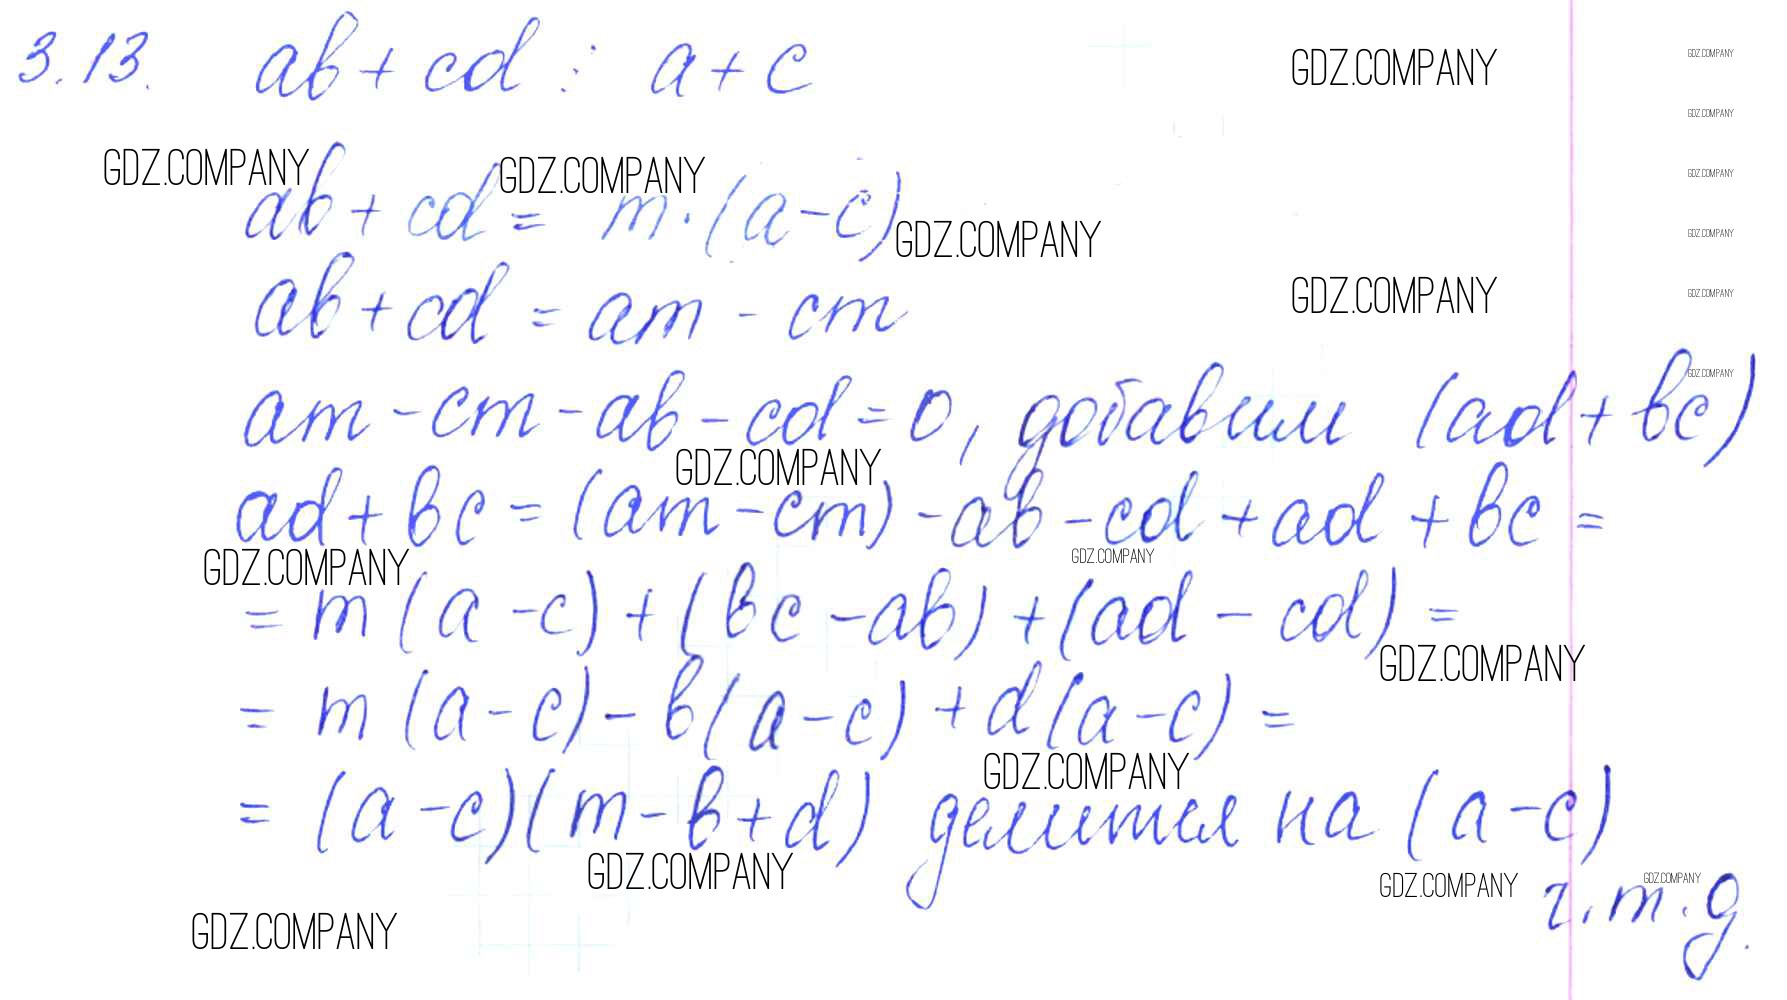 3.13. ab + cd ⋮ a + c
GDZ.COMPANY
GDZ.COMPANY
GDZ.COMPANY
GDZ.COMPANY GDZ.COMPANY
GDZ.COMPANY
ab + cd = m · (a - c)
GDZ.COMPANY
GDZ.COMPANY
GDZ.COMPANY
GDZ.COMPANY
ab + cd = am - cm
GDZ.COMPANY
am - cm - ab - cd = 0, добавим (ad + bc)
GDZ.COMPANY
ad + bc = (am - cm) - ab - cd + ad + bc =
GDZ.COMPANY
GDZ.COMPANY
= m (a - c) + (bc - ab) + (ad - cd) =
GDZ.COMPANY
= m (a - c) - b (a - c) + d (a - c) =
GDZ.COMPANY
= (a - c)(m - b + d) делится на (a - c)
GDZ.COMPANY
GDZ.COMPANY
GDZ.COMPANY
ч.т.д.
GDZ.COMPANY